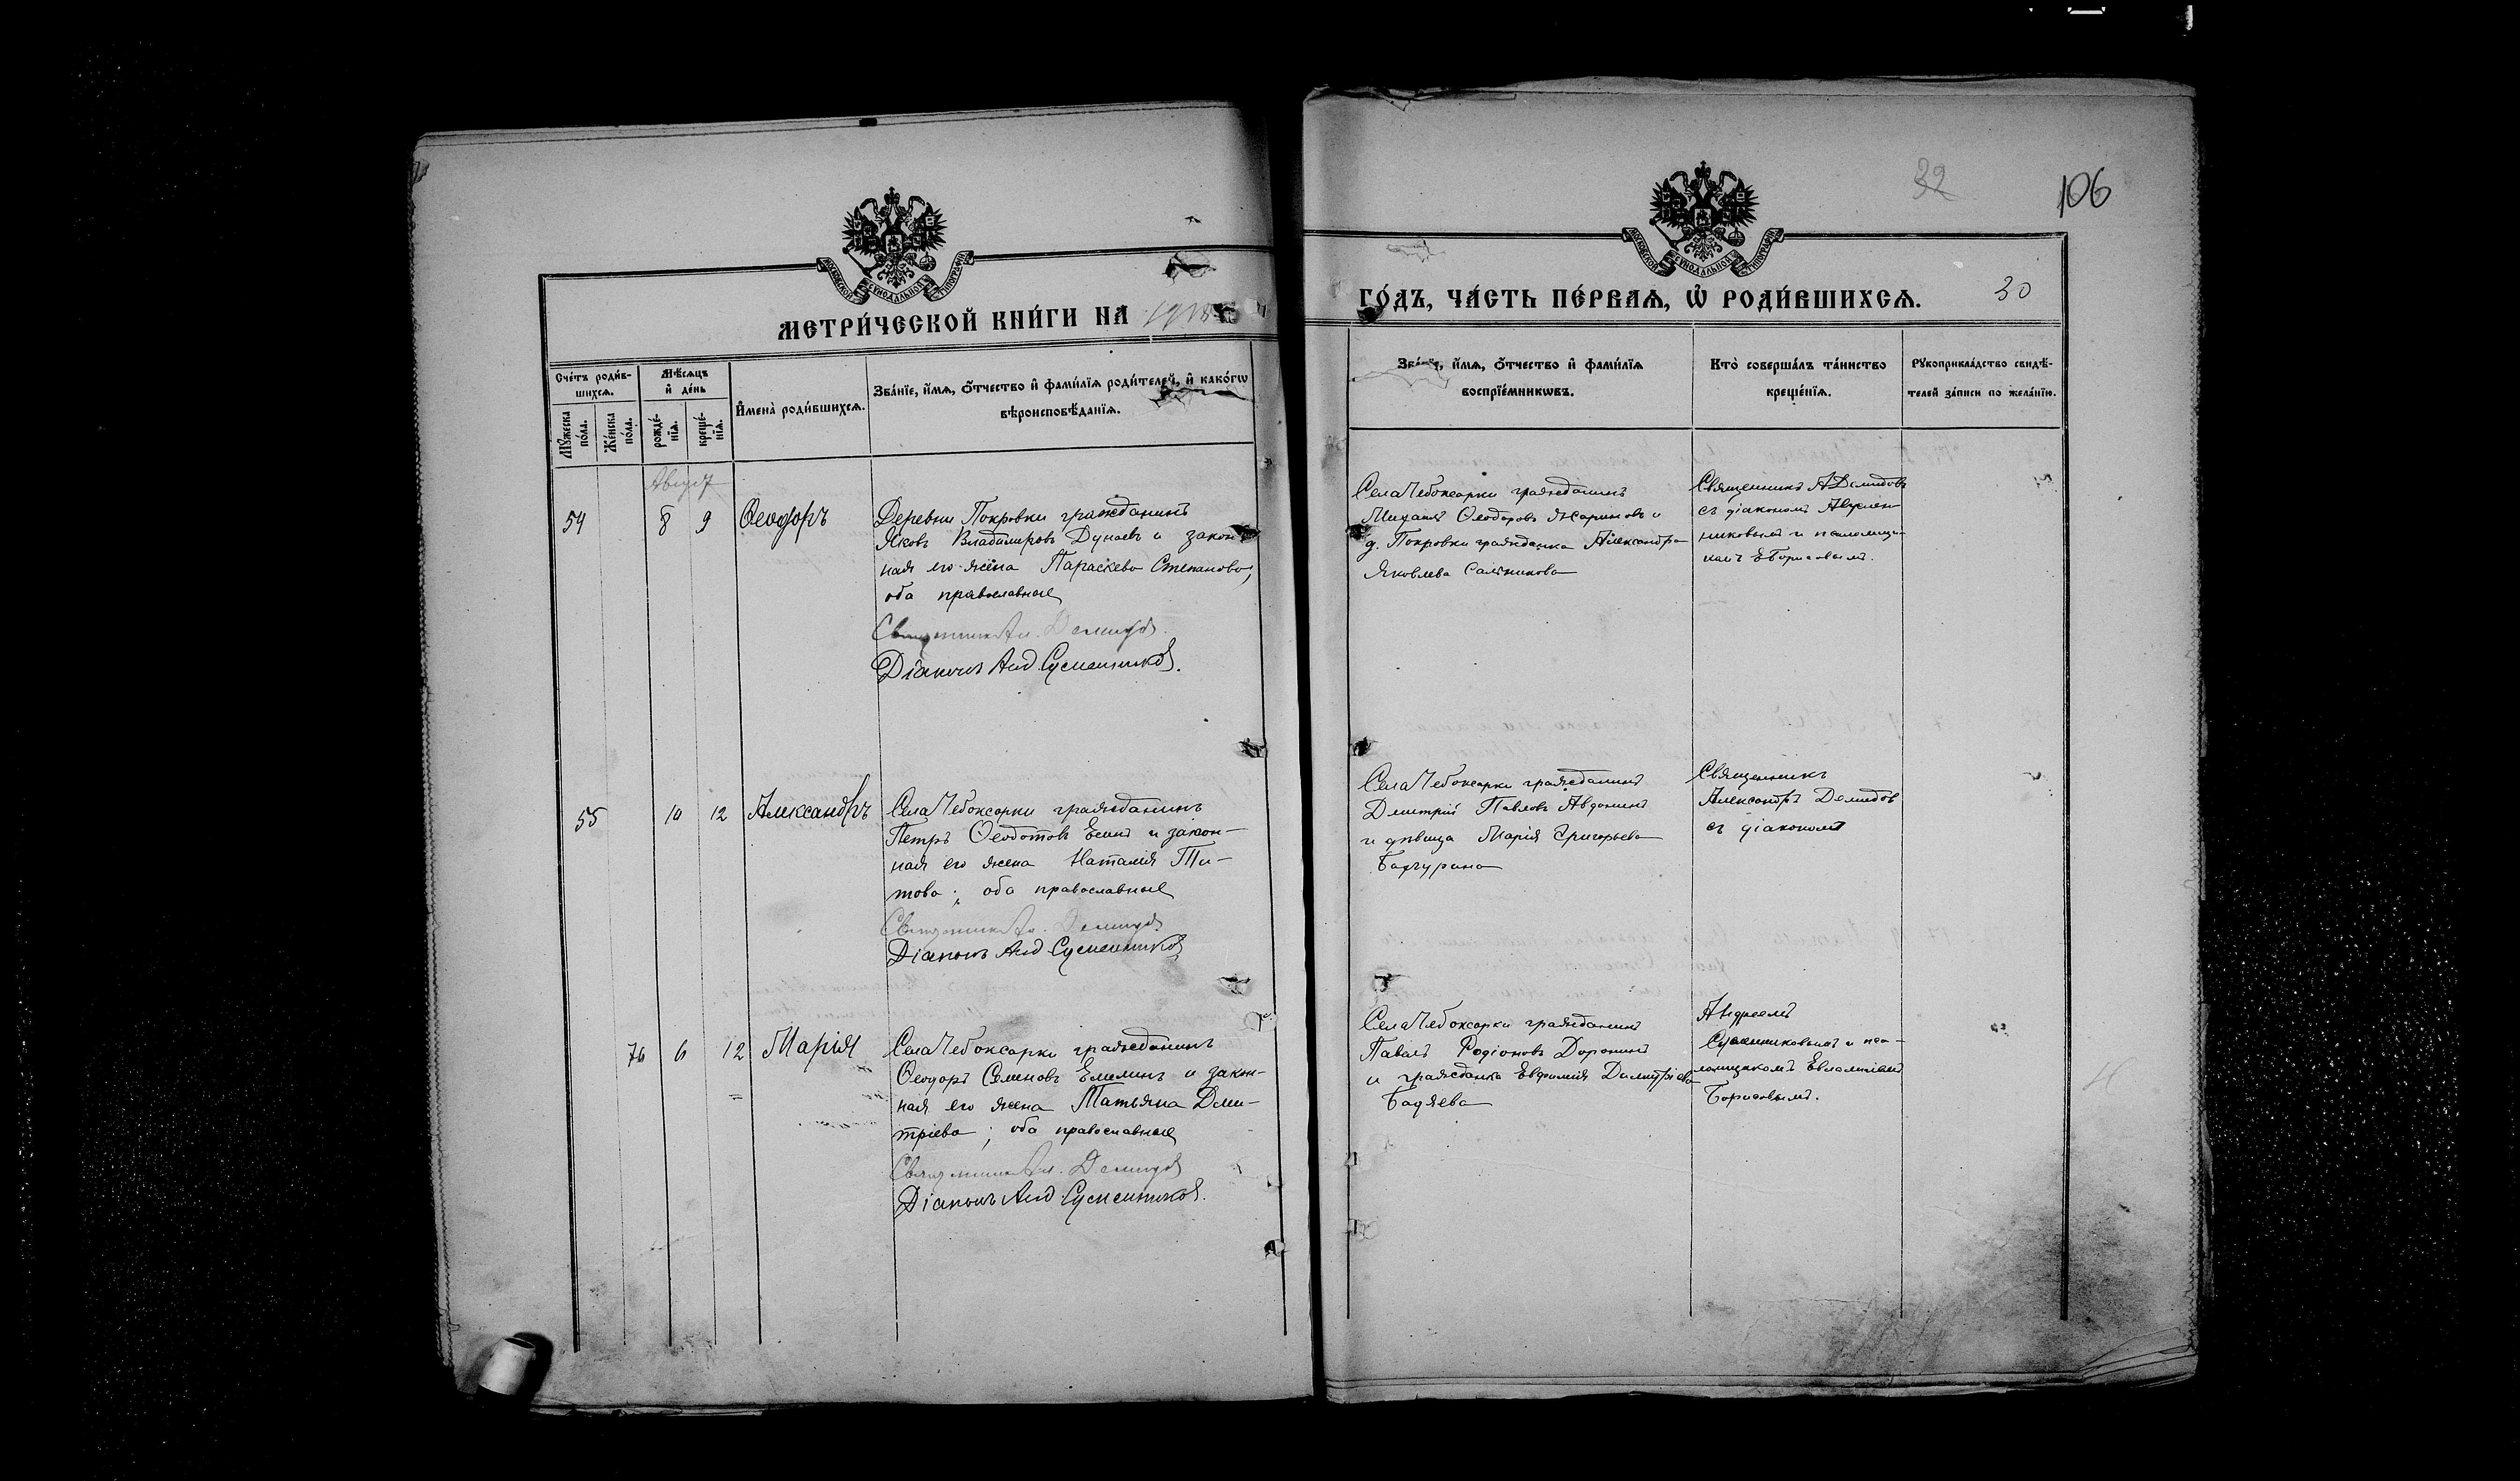 32
106
МОСКОВСКОЙ СѴНОДАЛЬНОЙ ТИПОГРАФІИ
МОСКОВСКОЙ СѴНОДАЛЬНОЙ ТИПОГРАФІИ
МЕТРИ́ЧЕСКОЙ КНИ́ГИ НА 1918
ГО́ДЪ, ЧА́СТЬ ПЕ́РВАѦ, Ѡ҆ РОДИ́ВШИХСѦ.
30
Сче́тъ роди́в-
шихсѧ.
Мꙋ́жеска по́ла.
Же́нска по́ла.
Мѣ́сѧцъ
и҆ де́нь
рожде́-
нїѧ.
креще́-
нїѧ.
И҆мена̀ роди́вшихсѧ.
Зва́нїе, и҆́мѧ, ѻ҆́тчество и҆ фами́лїѧ роди́телей, и҆ како́гѡ
вѣроисповѣ́данїѧ.
Зва́нїе, и҆́мѧ, ѻ҆́тчество и҆ фами́лїѧ
воспрїе́мникѡвъ.
Кто̀ соверша́лъ та́инство
креще́нїѧ.
Рꙋкоприкла́дство свидѣ́-
телей за́писи по жела́нїю.
Август
54
8
9
Ѳеодоръ
Деревни Покровки гражданинъ
Яковъ Владимировъ Дунаевъ и закон
ная его жена Параскева Степанова,
оба православные
Священникъ Ал. Демидов
Діаконъ Анд. Сусленников.
Села Чебоксарки гражданинъ
Михаилъ Ѳеодоровъ Жариновъ и
д. Покровки гражданка Александра
Яковлева Сальникова
Священникъ А Демидовъ
съ діакономъ
никовымъ и псаломщи-
комъ Е Борисовымъ.
55
10
12
Александръ
Села Чебоксарки гражданинъ
Петръ Ѳеодотовъ Есинъ и закон-
ная его жена Наталія Ти-
това; оба православные
Священникъ Ал. Демидов
Діаконъ Анд. Сусленников
Села Чебоксарки гражданинъ
Дмитрій Павловъ Авдонинъ
и дѣвица Марія Григорьева
Священникъ
Александръ Демидов
съ діакономъ
76
6
12
Марія
Села Чебоксарки гражданинъ
Ѳеодоръ Семеновъ Емелинъ и закон-
ная его жена Татьяна Дми-
тріева; оба православные
Священникъ Ал. Демидов
Діаконъ Анд. Сусленников.
Села Чебоксарки гражданинъ
Павелъ Родіоновъ Доронинъ
и гражданка Евфимія Димитріева
Бадяева
Андреемъ
Сусленниковымъ и пса-
ломщикомъ Евлампіемъ
Борисовымъ.